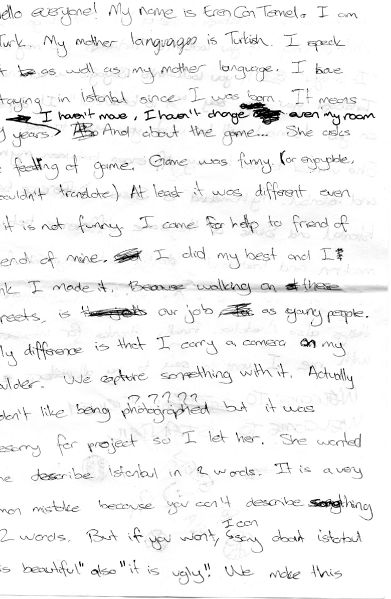 ello everyone! My name is Eren Can Temel. I am
Turk. My mother languages is Turkish. I speak
as well as my mother language. I have
taying in istanbul since I was born. It means
I haven't move, I haven't change even my room
years And about the game... She asks
feeling of game. Game was funny (or enjoyable,
ouldn't translate) At least it was different even
it is not funny. I came for help to friend of
end of mine. I did my best and I
nk I made it. Because walking on these
reets, is our job as young people.
ly difference is that I carry a camera on my
oulder. We capture something with it. Actually
don't like being photographed but it was
? ? ? ? ?
essary for project so I let her. She wanted
e describe istanbul in 2 words. It is a very
mon mistake because you can't describe something
2 words. But if you want, I can say about istanbul
is beautiful" also "it is ugly". We make this